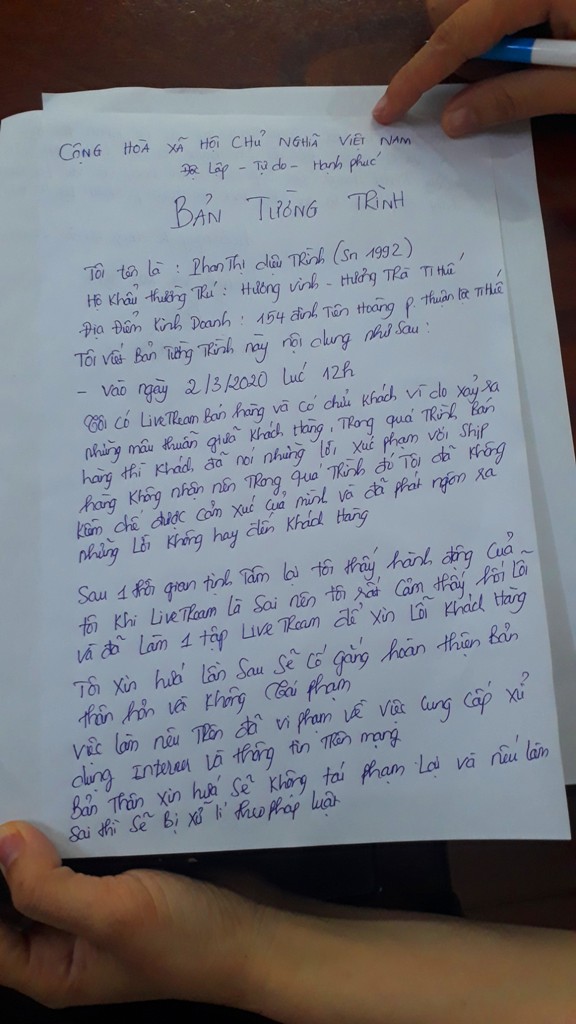 CỘNG HOÀ XÃ HỘI CHỦ NGHĨA VIỆT NAM
Độc Lập - Tự do - Hạnh phúc
BẢN TƯỜNG TRÌNH
Tôi tên là : Phan Thị diệu Trinh (Sn 1992)
Hộ Khẩu thường Trú : Hương vinh - Hương Trà TT Huế
Địa Điểm Kinh Doanh : 154 đinh Tiên Hoàng p. thuận lộc TT Huế
Tôi viết Bản Tường Trình này nội dung như sau :
- vào ngày 2/3/2020 Lúc 12h
Tôi có LiveTream Bán hàng và có chửi Khách vì do xảy ra
những mâu thuẫn giữa Khách Hàng, Trong quá Trình Bán
hàng thì Khách đã nói những lời xúc phạm với Ship
hàng Không nhận nên Trong quá Trình đó Tôi đã Không
Kiềm chế được cảm xúc của mình và đã phát ngôn ra
những Lời Không hay đến Khách Hàng
Sau 1 thời gian tịnh Tâm lại tôi thấy hành động Của
tôi Khi LiveTream là Sai nên tôi rất Cảm thấy hối Lỗi
và đã Làm 1 tập LiveTream để xin Lỗi Khách Hàng
Tôi Xin hứa Lần Sau Sẽ Cố gắng hoàn thiện Bản
thân hơn và Không Tái phạm
việc làm nêu Trên đã vi phạm về việc Cung Cấp xử
dụng Internet và thông tin Trên mạng
Bản Thân xin hứa Sẽ Không tái phạm Lại và nếu làm
Sai thì Sẽ Bị xử lí theo pháp luật